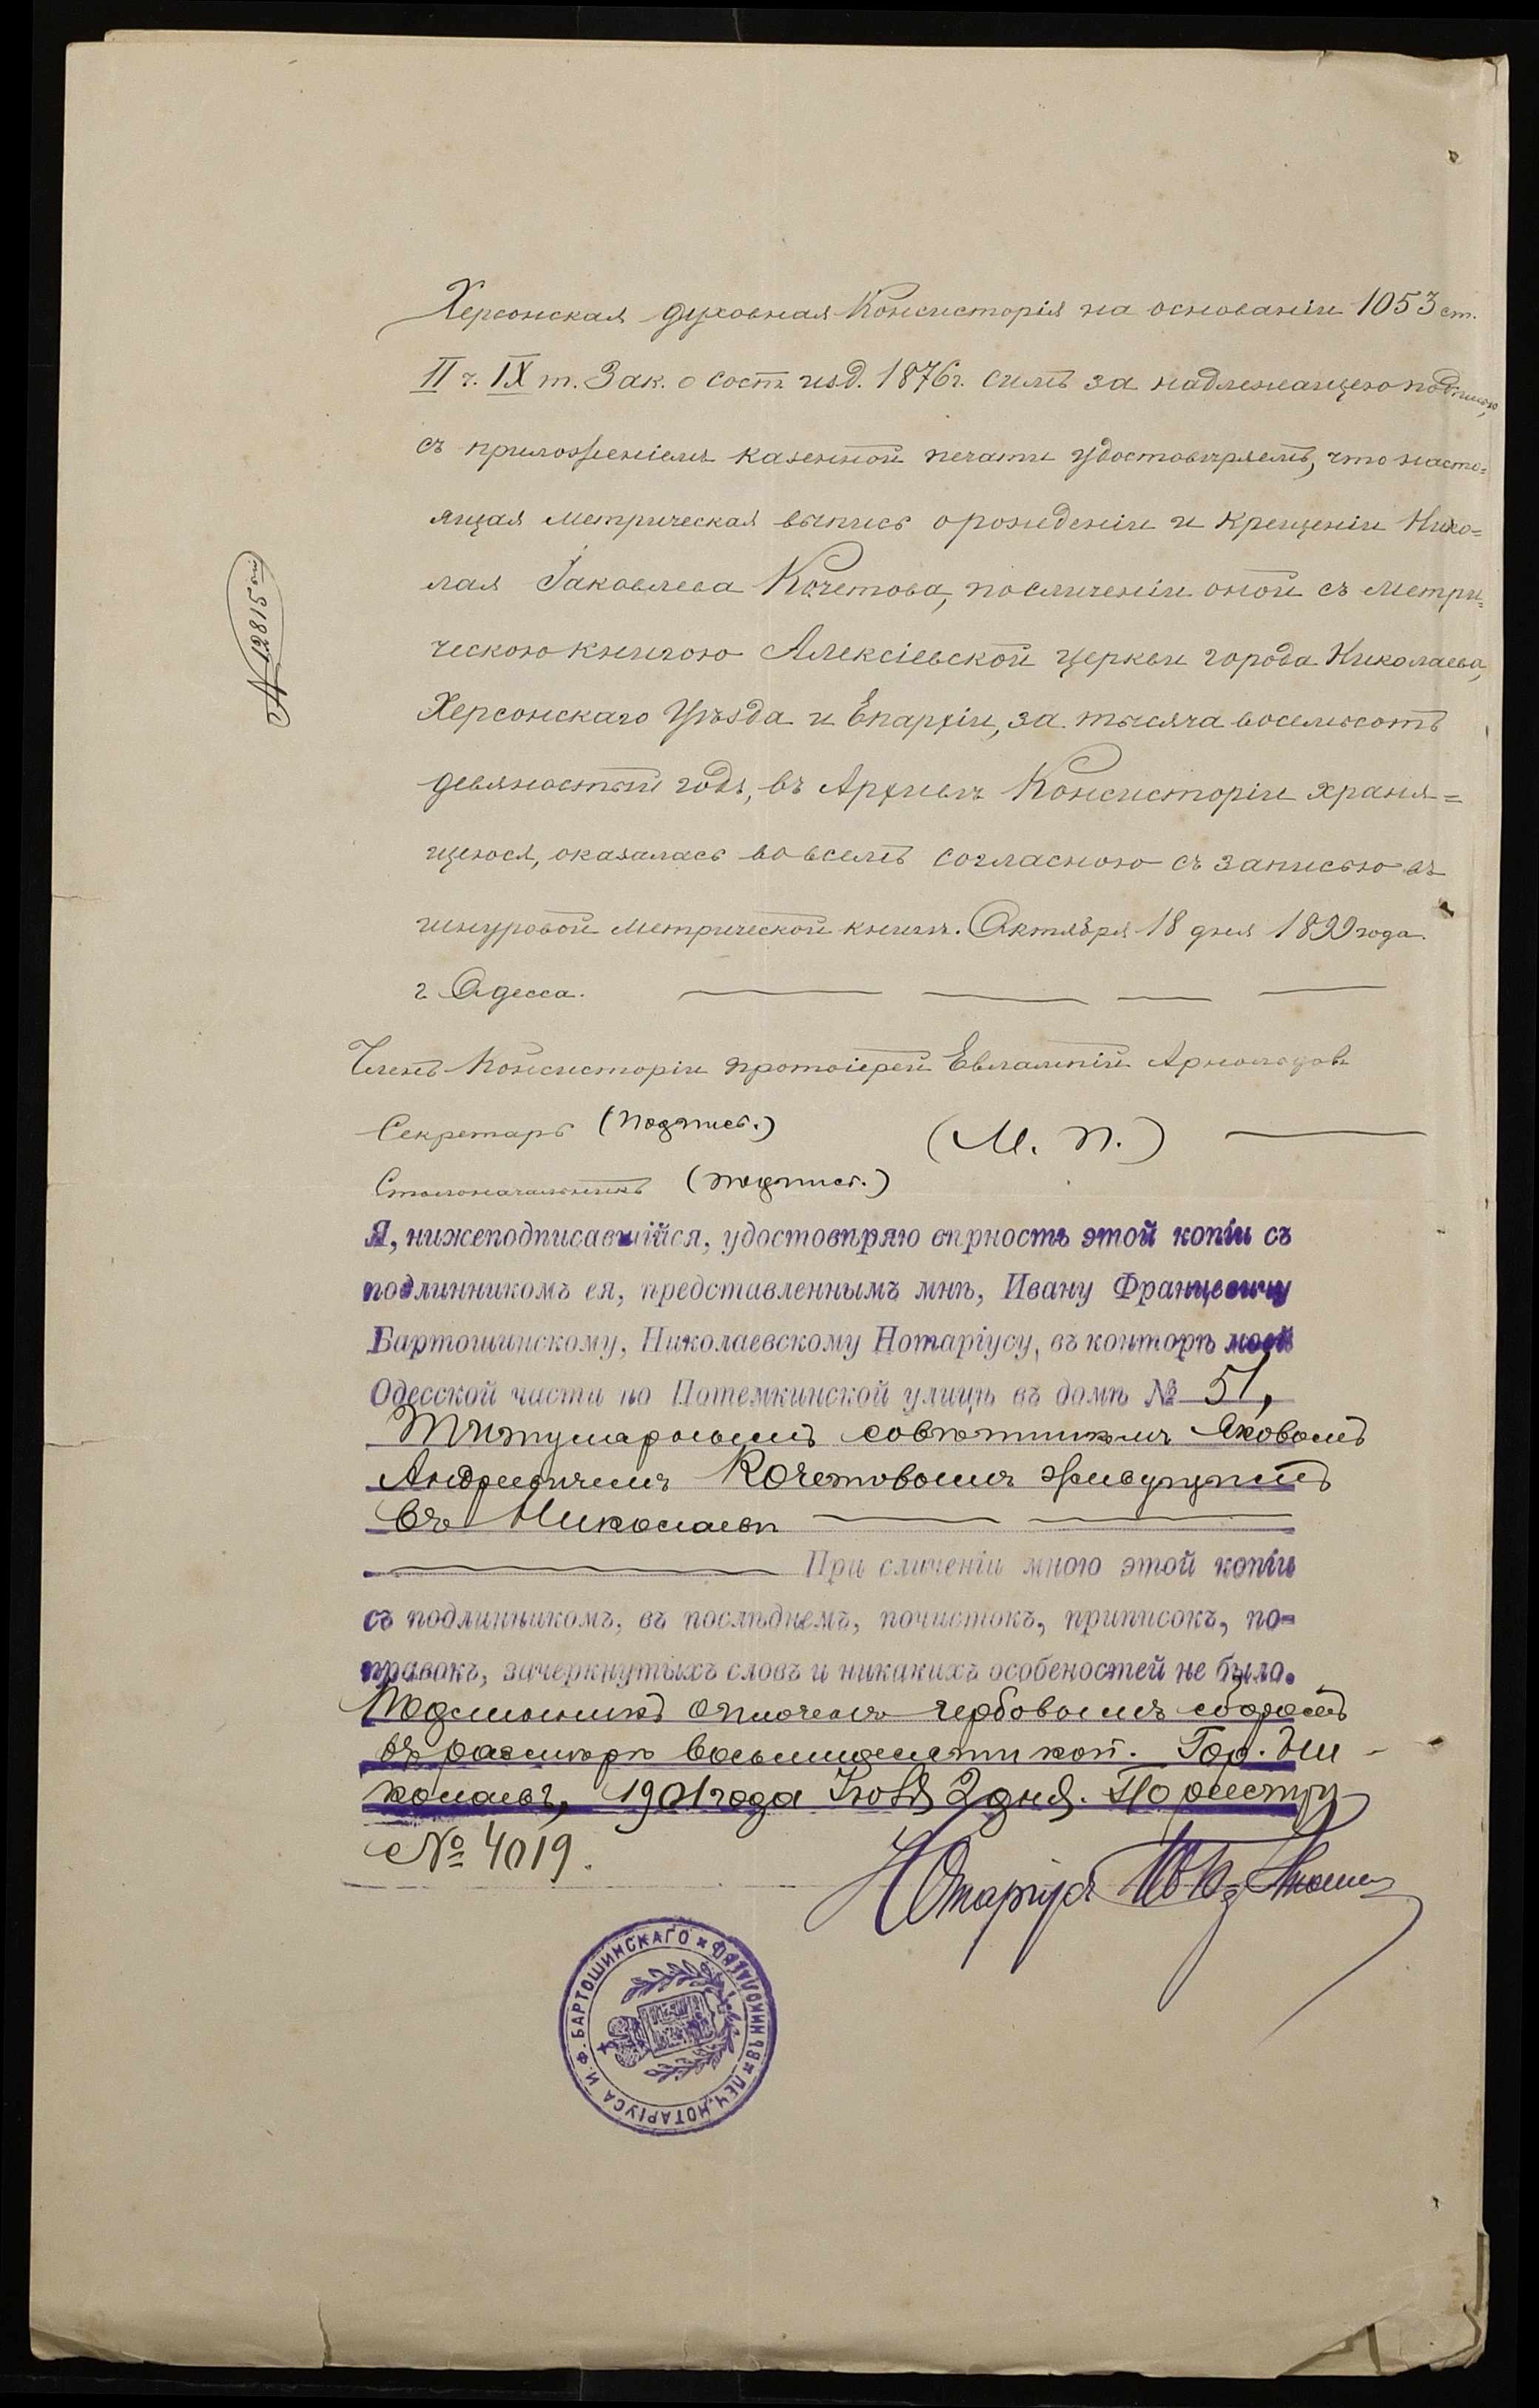 Херсонская духовная Консисторія на основаніи 1053 ст.
II ч. IX т. Зак. о сост. изд. 1876 г. симъ за надлежащею подписью,
съ приложеніемъ казенной печати удостовѣряетъ, что насто=
ящая метрическая выпись о рожденіи и крещеніи Нико=
лая Іаковлева Кочетова, по сличеніи оной съ метри=
ческою книгою Алексіевской церкви города Николаева,
Херсонскаго Уѣзда и Епархіи, за тысяча восемьсотъ
девяностый годъ, въ Архивѣ Консисторіи храня=
щеюся, оказалась во всемъ согласною съ записью въ
шнуровой метрической книгѣ. Октября 18 дня 1899 года.
г. Одесса.
№ 12815
Членъ Консисторіи протоіерей Евлампій Арнольдов
Секретарь (подпись.) (М. П.)
Столоначальникъ (подпись.)
Я, нижеподписавшійся, удостовѣряю вѣрность этой копіи съ
подлинникомъ ея, представленнымъ мнѣ, Ивану Францевичу
Бартошинскому, Николаевскому Нотаріусу, въ конторѣ моей
Одесской части по Потемкинской улицѣ въ домѣ № 51,
Титулярнымъ совѣтникомъ Яковомъ
Андреевичемъ Кочетовымъ живущимъ
въ Николаевѣ
При сличеніи мною этой копіи
съ подлинникомъ, въ послѣднемъ, почистокъ, приписокъ, по=
правокъ, зачеркнутыхъ словъ и никакихъ особеностей не было.
Подлинникъ оплоченъ гербовымъ сборомъ
въ размѣрѣ восьмидесяти коп. Гор. Ни-
колаевъ, 1901 года Іюня 2 дня. По реестру
№ 4019.
Нотаріусъ
ПЕЧ. НОТАРІУСА И. Ф. БАРТОШИНСКАГО ВЪ НИКОЛАЕВѢ